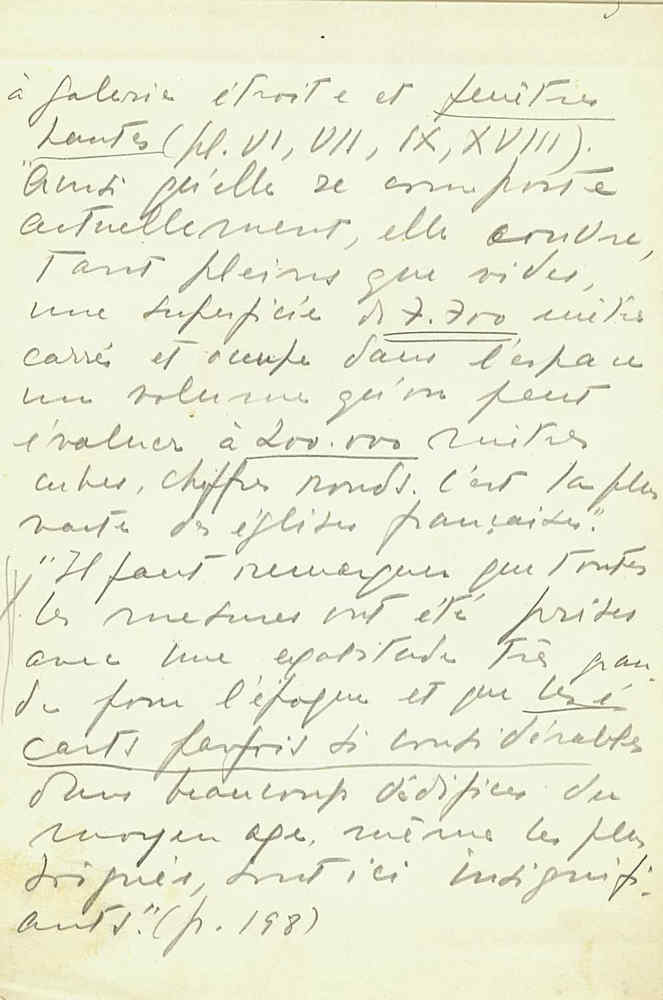 à galerie étroite et fenêtres
hautes (pl. VI, VII, IX, XVIII).
"Ainsi qu'elle se comporte
actuellement, elle couvre,
tant pleins que vides,
une superficie de 7.700 mètres
carrés et occupe dans l'espace
un volume qu'on peut
évaluer à 200.000 mètres
cubes, chiffres ronds. C'est la plus
vaste des églises françaises."
"Il faut remarquer que toutes
les mesures ont été prises
avec une exactitude très gran-
de pour l'époque et que les é-
carts parfois si considérables
dans beaucoup d'édifices du
moyen age, même les plus
soignés, sont ici insignifi-
ants." (p. 198)